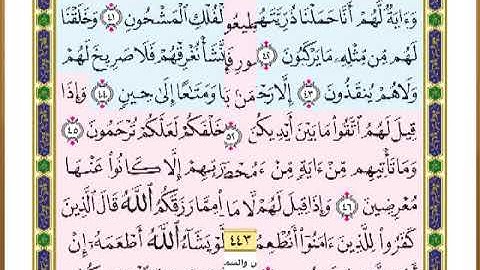 وَءَايَةٌ لَّهُمْ أَنَّا حَمَلْنَا ذُرِّيَّتَهُمْ لْفُلْكِ ٱلْمَشْحُونِ ٤١ وَخَلَقْنَا
لَهُم مِّن مِّثْلِهِۦ مَا يَرْكَبُونَ ٤٢ نَّشَأْ نُغْرِقْهُمْ فَلَا صَرِيخَ لَهُمْ
وَلَا هُمْ يُنقَذُونَ ٤٣ إِلَّا وَمَتَٰعًا إِلَىٰ حِينٍ ٤٤ وَإِذَا
قِيلَ لَهُمُ ٱتَّقُوا۟ مَا بَيْنَ ٥٢ خَلْفَكُمْ لَعَلَّكُمْ تُرْحَمُونَ ٤٥
وَمَا تَأْتِيهِم مِّنْ ءَايَةٍ مِّنْ إِلَّا كَانُوا۟ عَنْهَا
مُعْرِضِينَ ٤٦ وَإِذَا قِيلَ لَهُمْ مِمَّا رَزَقَكُمُ ٱللَّهُ قَالَ ٱلَّذِينَ
كَفَرُوا۟ لِلَّذِينَ ءَامَنُوٓا۟ أَنُطْعِمُ ٤٤٣ لَّوْ يَشَآءُ ٱللَّهُ أَطْعَمَهُۥٓ إِنْ